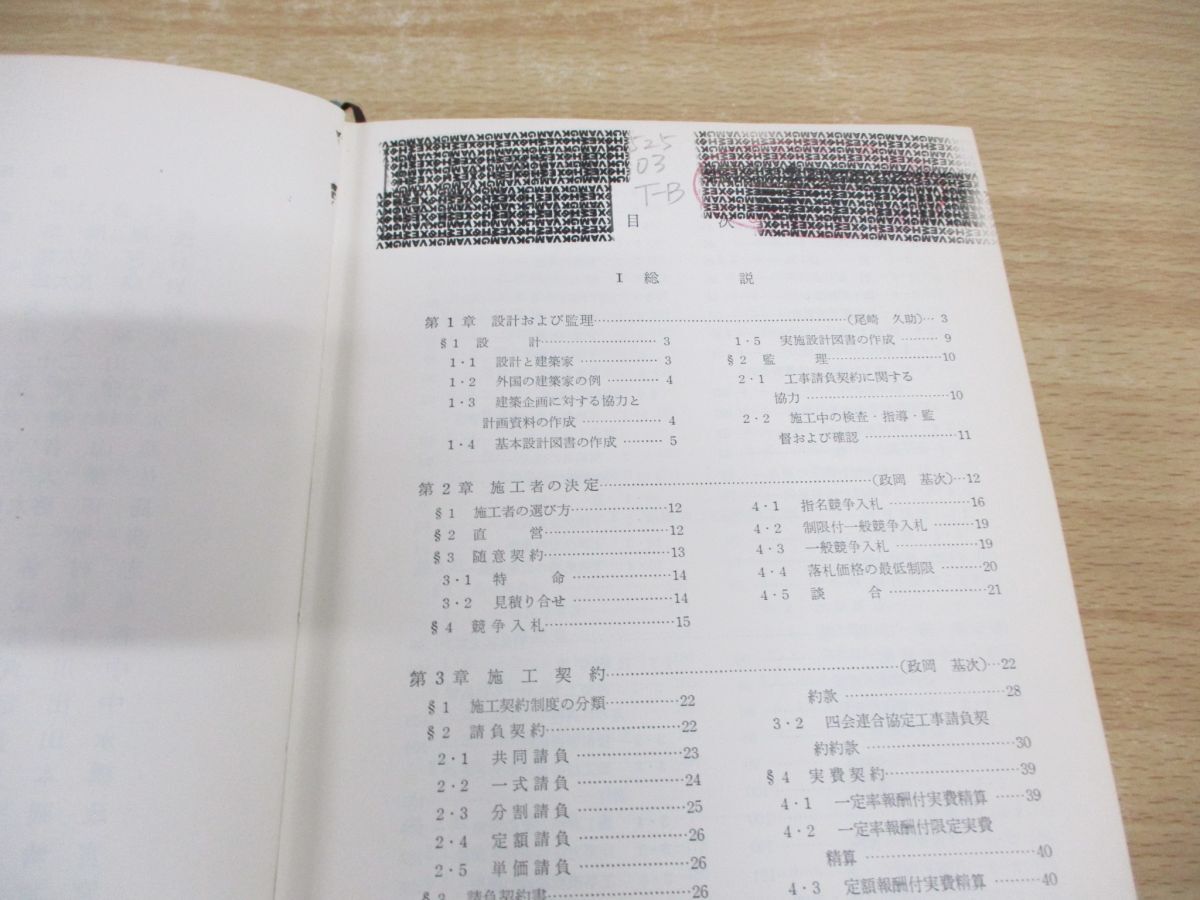 525
03
T-B
目 次
I 総 説
第1章 設計および監理……………(尾崎 久助)… 3
§1 設 計…………… 3
1・1 設計と建築家 …………… 3
1・2 外国の建築家の例 ………… 4
1・3 建築企画に対する協力と
計画資料の作成 …………… 4
1・4 基本設計図書の作成 ……… 5
1・5 実施設計図書の作成 ……… 9
§2 監 理……………10
2・1 工事請負契約に関する
協力 ……………10
2・2 施工中の検査・指導・監
督および確認 ……………11
第2章 施工者の決定……………(政岡 基次)…12
§1 施工者の選び方……………12
§2 直 営……………12
§3 随意契約……………13
3・1 特 命 ……………14
3・2 見積り合せ ……………14
§4 競争入札……………15
4・1 指名競争入札 ……………16
4・2 制限付一般競争入札 ………19
4・3 一般競争入札 ……………19
4・4 落札価格の最低制限 ………20
4・5 談 合 ……………21
第3章 施工契約……………(政岡 基次)…22
§1 施工契約制度の分類…………22
§2 請負契約……………22
2・1 共同請負 ……………23
2・2 一式請負 ……………24
2・3 分割請負 ……………25
2・4 定額請負 ……………26
2・5 単価請負 ……………26
§3 請負契約書……………26
約款 ……………28
3・2 四会連合協定工事請負契
約約款 ……………30
§4 実費契約……………39
4・1 一定率報酬付実費精算 ……39
4・2 一定率報酬付限定実費
精算 ……………40
4・3 定額報酬付実費精算 ………40